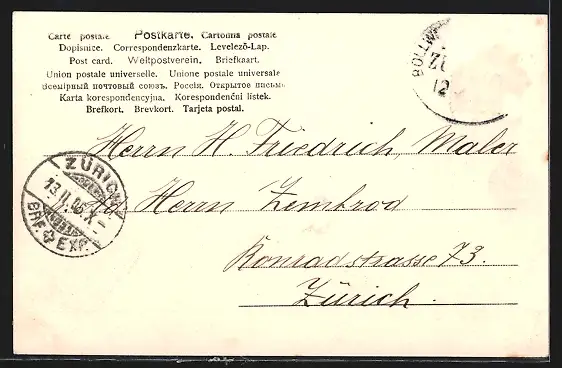 Carte postale. Postkarte. Cartolina postale
Dopisnice. Correspondenzkarte. Levelező-Lap.
Post card. Weltpostverein. Briefkaart.
Union postale universelle. Unione postale universale
Всемірный почтовый союзъ. Россія. Открытое письмо.
Karta korespondencyjna. Korespondenční lístek.
Brefkort. Brevkort. Tarjeta postal.
BOLLW
ZÜ
12
Herrn H. Friedrich, Maler
ZÜRICH
13.II. X-
BRF. EXP.
Herrn Zembrod
Konradstrasse 73.
Zürich.